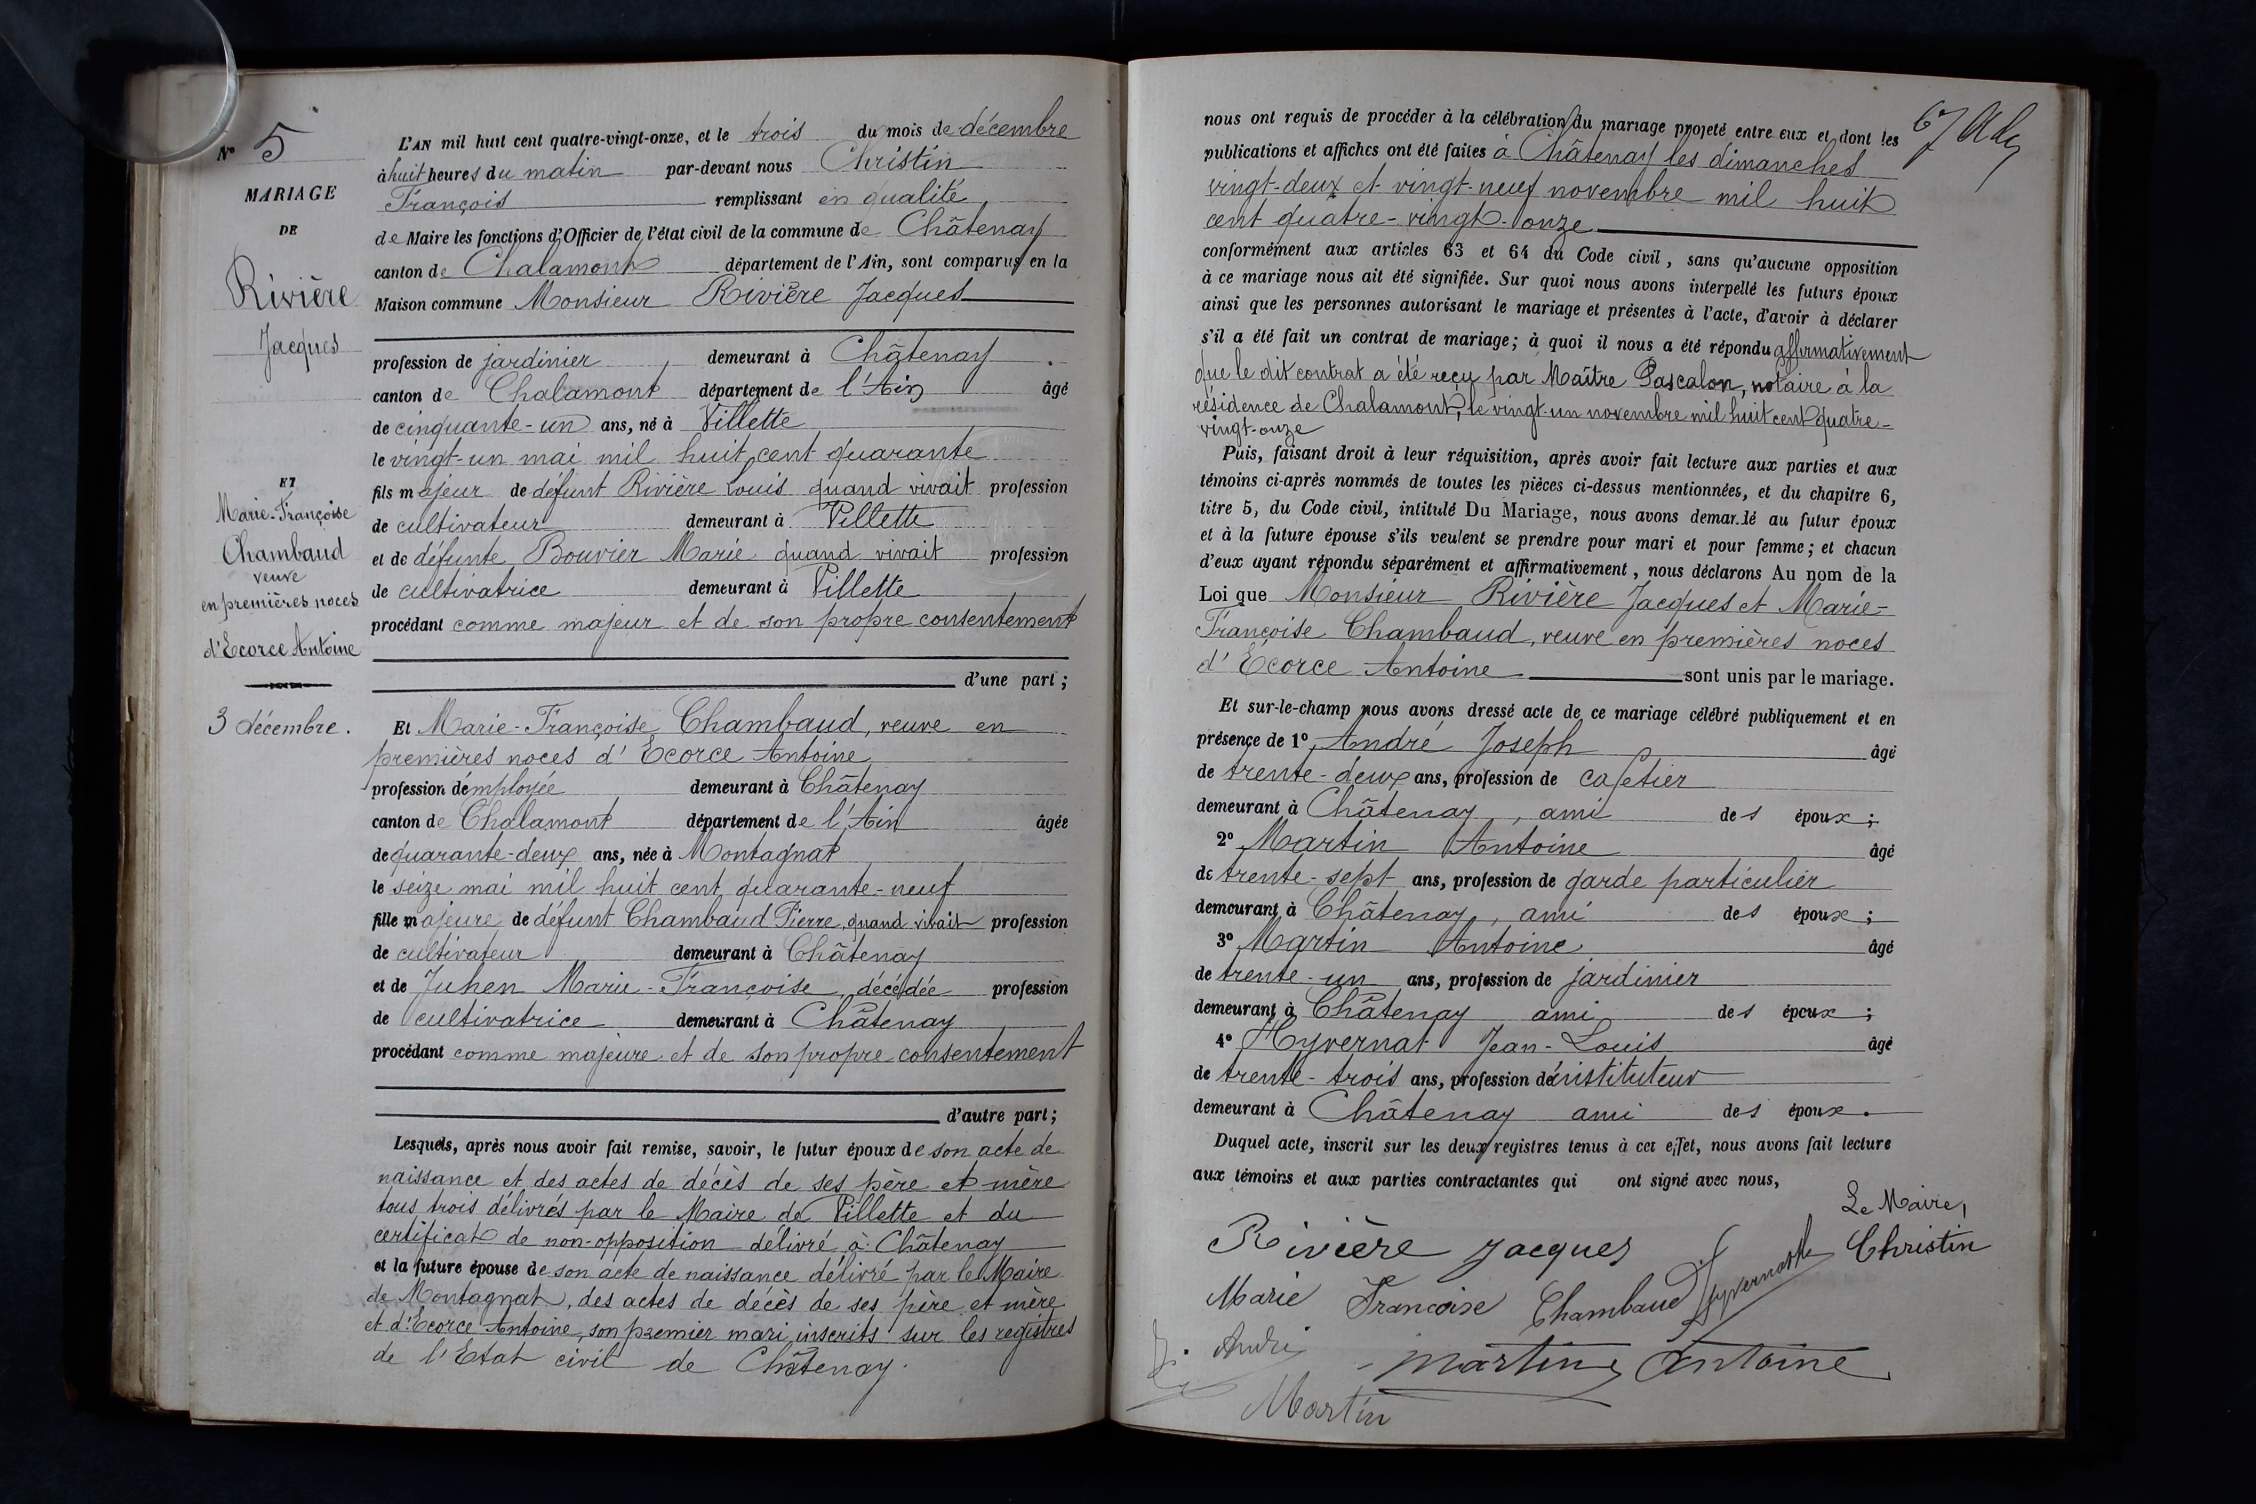 N° 5
MARIAGE
DE
Rivière
Jacques
ET
Marie-Françoise
Chambaud
veuve
en premières noces
d'Ecorce Antoine
3 décembre.
L'AN mil huit cent quatre-vingt-onze, et le trois du mois de décembre
à huit heures du matin par-devant nous Christin
François remplissant en qualité
de Maire les fonctions d'Officier de l'état civil de la commune de Châtenay
canton de Chalamont département de l'Ain, sont comparus en la
Maison commune Monsieur Rivière Jacques
profession de jardinier demeurant à Châtenay
canton de Chalamont département de l'Ain âgé
de cinquante-un ans, né à Villette
le vingt-un mai mil huit cent quarante
fils majeur de défunt Rivière Louis quand vivait profession
de cultivateur demeurant à Villette
et de défunte Bouvier Marie quand vivait profession
de cultivatrice demeurant à Villette
procédant comme majeur et de son propre consentement
d'une part;
Et Marie-Françoise Chambaud, veuve en
premières noces d'Ecorce Antoine
profession d'employée demeurant à Châtenay
canton de Chalamont département de l'Ain âgée
de quarante-deux ans, née à Montagnat
le seize mai mil huit cent quarante-neuf
fille majeure de défunt Chambaud Pierre, quand vivait profession
de cultivateur demeurant à Châtenay
et de Juhen Marie-Françoise, décédée profession
de cultivatrice demeurant à Châtenay
procédant comme majeure et de son propre consentement
d'autre part;
Lesquels, après nous avoir fait remise, savoir, le futur époux de son acte de
naissance et des actes de décès de ses père et mère
tous trois délivrés par le Maire de Villette et du
certificat de non-opposition délivré à Châtenay
et la future épouse de son acte de naissance délivré par le Maire
de Montagnat, des actes de décès de ses père et mère
et d'Ecorce Antoine, son premier mari, inscrits sur les registres
de l'Etat civil de Châtenay.
67
nous ont requis de procéder à la célébration du mariage projeté entre eux et dont les
publications et affiches ont été faites à Châtenay les dimanches
vingt-deux et vingt-neuf novembre mil huit
cent quatre-vingt-onze.
conformément aux articles 63 et 64 du Code civil, sans qu'aucune opposition
à ce mariage nous ait été signifiée. Sur quoi nous avons interpellé les futurs époux
ainsi que les personnes autorisant le mariage et présentes à l'acte, d'avoir à déclarer
s'il a été fait un contrat de mariage; à quoi il nous a été répondu affirmativement
que le dit contrat a été reçu par Maître Pascalon, notaire à la
résidence de Chalamont, le vingt-un novembre mil huit cent quatre-
vingt-onze
Puis, faisant droit à leur réquisition, après avoir fait lecture aux parties et aux
témoins ci-après nommés de toutes les pièces ci-dessus mentionnées, et du chapitre 6,
titre 5, du Code civil, intitulé Du Mariage, nous avons demandé au futur époux
et à la future épouse s'ils veulent se prendre pour mari et pour femme; et chacun
d'eux ayant répondu séparément et affirmativement, nous déclarons Au nom de la
Loi que Monsieur Rivière Jacques et Marie-
Françoise Chambaud, veuve en premières noces
d'Ecorce Antoine sont unis par le mariage.
Et sur-le-champ nous avons dressé acte de ce mariage célébré publiquement et en
présence de 1° André Joseph âgé
de trente-deux ans, profession de cafetier
demeurant à Châtenay, ami des époux;
2° Martin Antoine âgé
de trente-sept ans, profession de garde particulier
demeurant à Châtenay, ami des époux;
3° Martin Antoine âgé
de trente-un ans, profession de jardinier
demeurant à Châtenay ami des époux;
4° Hyvernat Jean-Louis âgé
de trente-trois ans, profession d'instituteur
demeurant à Châtenay ami des époux.
Duquel acte, inscrit sur les deux registres tenus à cet effet, nous avons fait lecture
aux témoins et aux parties contractantes qui ont signé avec nous,
Le Maire,
Rivière Jacques Christin
Marie Francoise Chambaud Hyvernat
André Martin Antoine
Martin